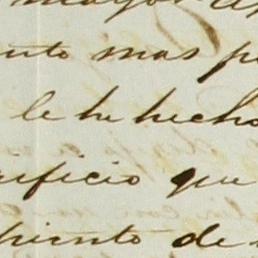 mayor
nto mas p
le he hecho
rificio que
piento de